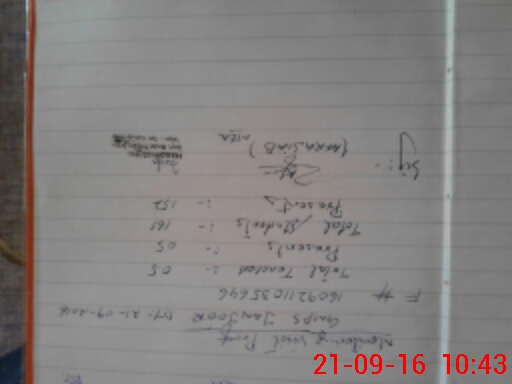 Monitoring visit Proof
GMPS JANJOOR DT: 21-09-2016
F # 160921035646
Total Teacher :- 05
Presents :- 05
Total Students :- 161
Presents :- 152
Sig:-
MEA
21-09-16 10:43